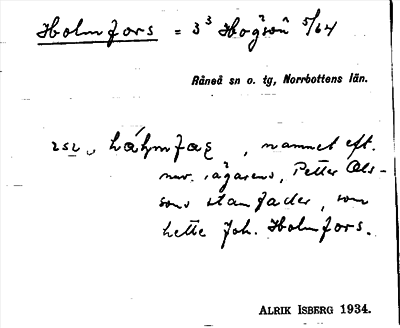 Holmfors = 3³ Högsön 5/64
Råneå sn o. tg, Norrbottens län.
namnet eft.
nuv. ägarens, Petter Ols-
sons stamfader, som
hette Joh. Holmfors.
ALRIK ISBERG 1934.